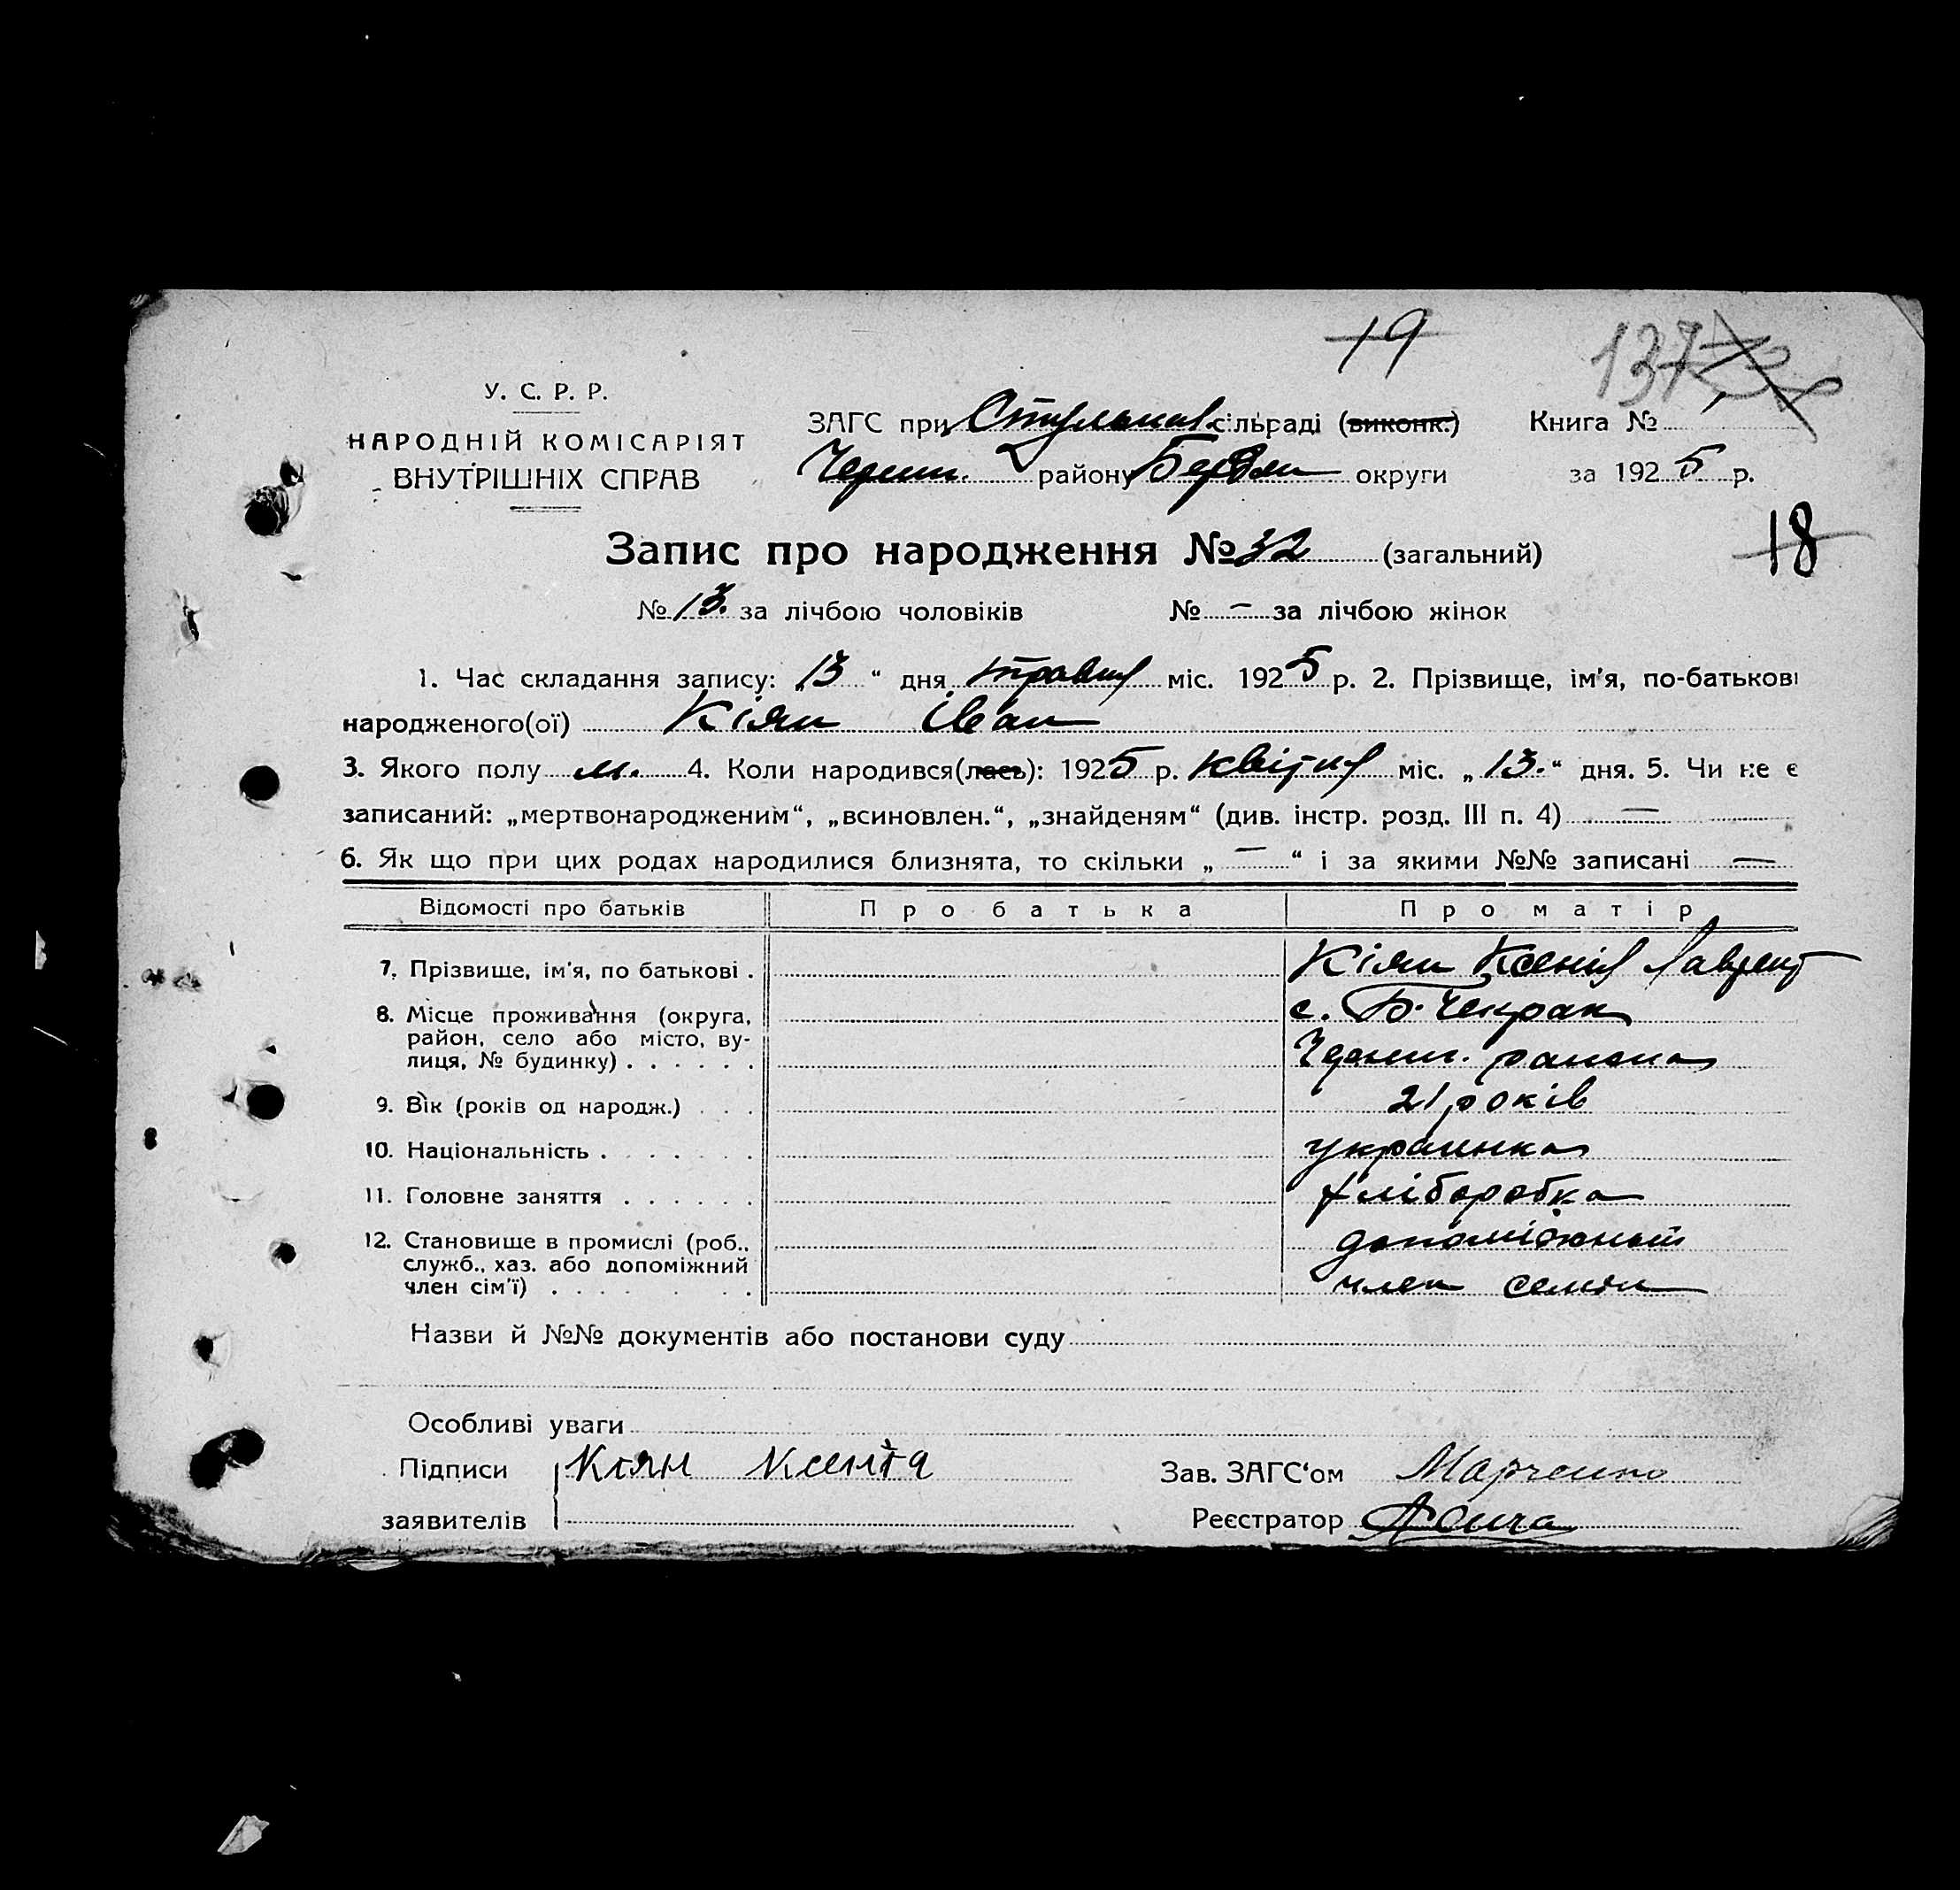 19
137
У. С. Р. Р.
НАРОДНІЙ КОМІСАРІЯТ
ВНУТРІШНІХ СПРАВ
ЗАГС при Стульнев. сільраді (виконк.) Книга №
Черниг. району Бердян округи за 1925 р.
18
Запис про народження № 32 (загальний)
№ 13. за лічбою чоловіків № — за лічбою жінок
1. Час складання запису: „13“ дня травня міс. 1925 р. 2. Прізвище, ім'я, по-батькові
народженого(ої) Кіян Іван
3. Якого полу м. 4. Коли народився(лась): 1925 р. квітня міс. „13.“ дня. 5. Чи не є
записаний: „мертвонародженим“, „всиновлен.“, „знайденям“ (див. інстр. розд. III п. 4) —
6. Як що при цих родах народилися близнята, то скільки „—“ і за якими №№ записані —
Відомості про батьків Про батька Про матір
7. Прізвище, ім'я, по батькові . Кіян Ксенія Лаврент
8. Місце проживання (округа, с. Б. Чекрак
район, село або місто, ву-
лиця, № будинку) . . . . . . Черниг. району
9. Вік (років од народж.) . . . 21 років
10. Національність . . . . . . украинка
11. Головне заняття . . . . . . хліборобка
12. Становище в промислі (роб., допоміжный
служб., хаз. або допоміжний
член сім'ї) . . . . . . член семьи
Назви й №№ документів або постанови суду
Особливі уваги
Підписи Кіян Ксенія Зав. ЗАГС'ом Марченко
заявителів Реєстратор